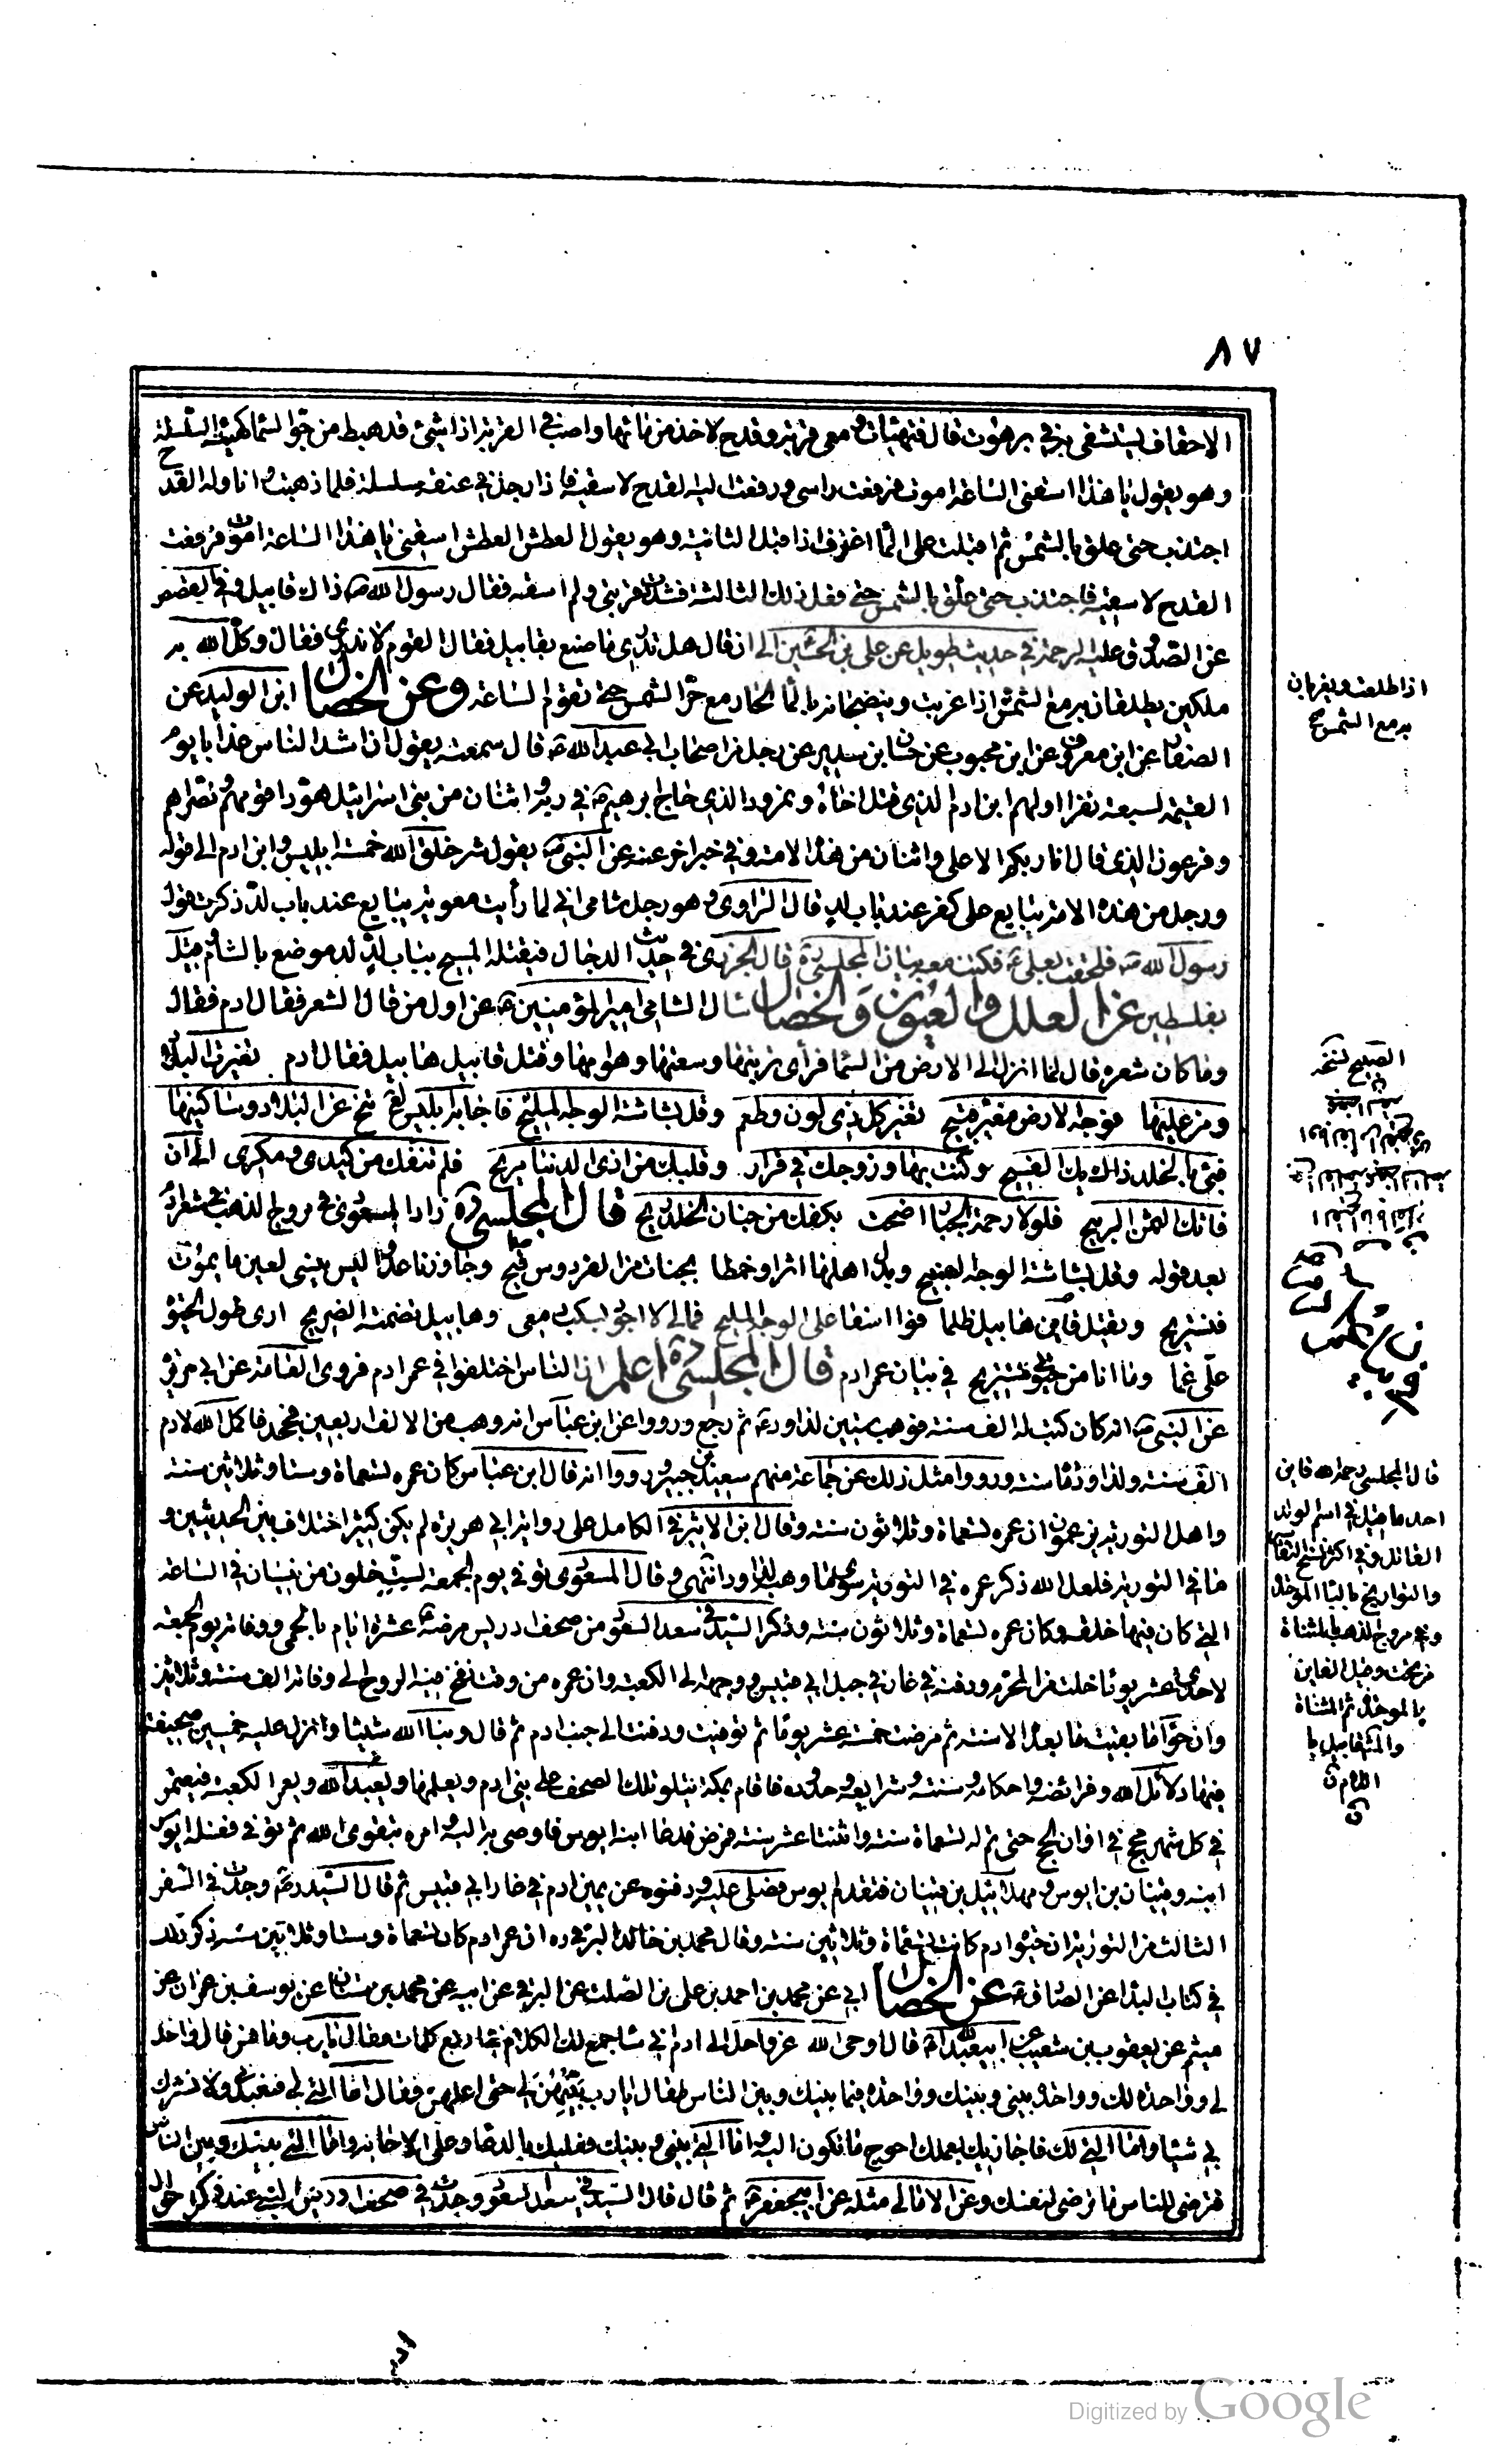 ٨٧
الاحقاف ليستشفى به فى برهوت قال فتهيات و معى قربة وقدح لاخذ من مائها واصب فى القربة اذا شئ قد هبط من جو السما كهيئة السلسلة
وهو يقول يا هذا اسقنى الساعة اموت فرفعت راسى ورفعت اليه القدح لاسقيه فاذا رجل فى عنقه سلسلة فلما ذهبت اناوله القدح
اجتذب حتى علق بالشمس ثم اقبلت على الما اغترف اذ اقبل الثانية وهو يقول العطش العطش اسقنى يا هذا الساعة اموت فرفعت
القدح لاسقيه فاجتذب حتى علق بالشمس حتى فعل ذلك الثالثة فشددت قربتى ولم اسقه فقال رسول الله ص ذاك قابيل وفى القصص
عن الصدوق عليه الرحمة فى حديث طويل عن على بن الحسين الى ان قال هل تدرى ما صنع بقابيل فقال القوم لا ندرى فقال وكل الله به
ملكين يطلعان به مع الشمس اذا غربت وينضحانه بالما الحار مع حر الشمس حتى تقوم الساعة وعن الخصال ابن الوليد عن
الصفار عن ابن معروف عن ابن محبوب عن حنان بن سدير عن رجل من اصحاب ابى عبد الله ع قال سمعته يقول ان اشد الناس عذابا يوم
القيمة لسبعة نفر اولهم ابن ادم الذى قتل اخاه ونمرود الذى حاج ابرهيم ع فى ربه واثنان من بنى اسرائيل هودا قومهم ونصراهم
وفرعون الذى قال انا ربكم الاعلى واثنان من هذه الامة وفى خبر اخر عنه عن النبى ص يقول شر خلق الله خمسة ابليس وابن ادم الى قوله
ورجل من هذه الامة يبايع على كفر عند باب لد قال الراوى وهو رجل شامى انى لما رأيت معوية يبايع عند باب لد ذكرت قول
رسول الله ص فلحقت بعلى ع فكنت معه بيان المجلسى ره قال الجزرى فى حديث الدجال فيقتله المسيح بباب لد لد موضع بالشام وقيل
بفلسطين عن العلل والعيون والخصال سال الشامى امير المؤمنين ع عن اول من قال الشعر فقال ادم فقال
وما كان شعره قال لما انزل الى الارض من السما فرأى تربتها وسعتها وهواءها وقتل قابيل هابيل فقال ادم تغيرت البلاد
ومن عليها فوجه الارض مغبر قبيح تغير كل ذى لون وطعم وقل بشاشة الوجه المليح فاجابه ابليس لع تنح عن البلاد وساكنيها
فبى بالخلد ضاق بك الفسيح وكنت بها وزوجك فى قرار وقلبك من اذى الدنيا مريح فلم تنفك من كيدى ومكرى الى ان
فاتك الثمن الربيح فلولا رحمة الجبار اضحت بكفك من جنان الخلد ريح قال المجلسى ره زاد المسعودى فى مروج الذهب فى شعر ادم
بعد قوله وقل بشاشة الوجه الصبيح وبدل اهلها اثلا وخمطا بجنات من الفردوس فيح وجاورنا عدوا ليس ينسى لعين ما يموت
فنستريح وقتل قاين هابيل ظلما فوا اسفا على الوجه المليح فمالى لا اجود بسكب دمعى وهابيل تضمنه الضريح ارى طول الحيوة
على غما وما انا من حيوتى مستريح فى بيان عمر ادم قال المجلسى ره اعلم ان الناس اختلفوا فى عمر ادم فروى العامة عن ابى هريرة
عن النبى ص انه كان كتب له الف سنة فوهب ستين لداود ع ثم رجع ورووا عن ابن عباس انه وهب من الالف اربعين فجحد فاكمل الله لادم
الف سنة ولداود مائة سنة ورووا مثل ذلك عن جماعة منهم سعيد بن جبير ورووا انه قال ابن عباس كان عمره تسعماة وستا وثلاثين سنة
واهل التورية يزعمون ان عمره تسعماة وثلاثون سنة وقال ابن الاثير فى الكامل على رواية ابى هريرة لم يكن كثير اختلاف بين الحديثين و
ما فى التورية فلعل الله ذكر عمره فى التورية سوى ما وهبه لداود انتهى وقال المسعودى توفى يوم الجمعة لست خلون من نيسان فى الساعة
التى كان فيها خلقه وكان عمره تسعماة وثلاثون سنة وذكر السيد فى سعد السعود من صحف ادريس مرضه عشرة ايام بالحمى ووفاته يوم الجمعة
لاحدى عشر يوما خلت من المحرم ودفنه فى غار فى جبل ابى قبيس ووجهه الى الكعبة وان عمره من وقت نفخ فيه الروح الى وفاته الف سنة وثلاثين
وان حوا ما بقيت بعده الا سنة ثم مرضت خمسة عشر يوما ثم توفيت ودفنت الى جنب ادم ثم قال ونبا الله شيثا وانزل عليه خمسين صحيفة
فيها دلائل الله وفرائضه واحكامه وسننه وشرايعه وحدوده فاقام بمكة يتلو تلك الصحف على بنى ادم ويعلمها ويعبد الله ويعمر الكعبة فيعتمر
فى كل شهر ويحج فى اوان الحج حتى تم له تسعماة سنة واثنتا عشر سنة فمرض فدعا ابنه انوس فاوصى به اليه وامره بتقوى الله ثم توفى فغسله انوس
ابنه وقينان بن انوس ومهلائيل بن قينان فتقدم انوس فصلى عليه ودفنوه عن يمين ادم فى غار ابى قبيس ثم قال السيد ره وجدت فى السفر
الثالث من التورية ان حيوة ادم كانت تسعماة وثلاثين سنة وقال محمد بن خالد البرقى ره ان عمر ادم كان تسعماة وستا وثلاثين سنة ذكر ذلك
فى كتاب البدا عن الصادق ع عن الخصال ابى عن محمد بن احمد بن على بن الصلت عن البرقى عن ابيه عن محمد بن سنان عن يوسف بن عمران عن
ميثم عن يعقوب بن شعيب عن ابى عبد الله ع قال اوحى الله عز وجل الى ادم انى ساجمع لك الكلام فى اربع كلمات فقال يا رب وما هن قال واحدة
لى وواحدة لك وواحدة بينى وبينك وواحدة فيما بينك وبين الناس فقال يا رب بينهن لى حتى اعلمهن فقال اما التى لى فتعبدنى ولا تشرك
بى شيئا واما التى لك فاجازيك بعملك احوج ما تكون اليه واما التى بينى وبينك فعليك بالدعا وعلى الاجابة واما التى بينك وبين الناس
فترضى للناس ما ترضى لنفسك وعن الامالى مثله عن ابيجعفر ع ثم قال قال السيد فى سعد السعود وجدت فى صحف ادريس النبى عند ذكر احوال
اذا طلعت ويغربان
به مع الشمس صح
الصبيح نسخه
قال المجلسى رحمه الله قاين
احد ما قيل فى اسم الولد
القاتل وفى اكثر نسخ التفاسير
والتواريخ بالبا الموحدة
وفى مروج الذهب بالمثناة
من تحت وقيل القابين
بالموحدة ثم المثناة
والمشهور قابيل با
اللام ق
Digitized by Google